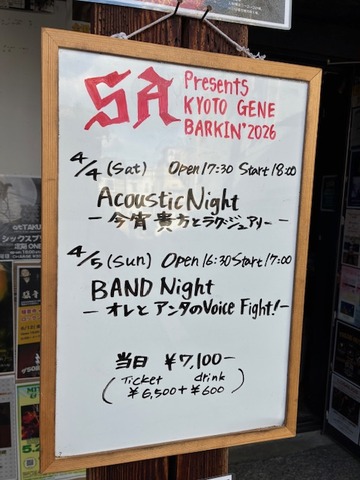 SA Presents
KYOTO GENE
BARKIN' 2026
4/4 (Sat) Open 17:30 Start 18:00
Acoustic Night
— 今宵 貴方とラグジュアリー —
4/5 (Sun) Open 16:30 Start 17:00
BAND Night
— オレとアンタのVoice Fight! —
当日 ¥7,100-
(Ticket ¥6,500 + drink ¥600)